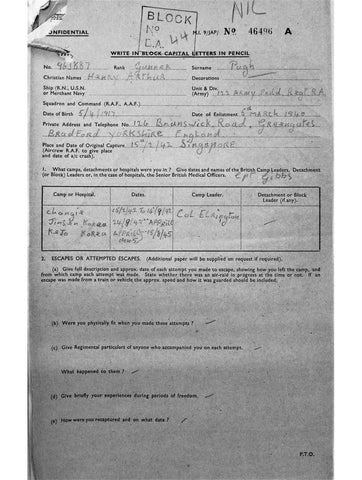 BLOCK
No
E.A. 44
NIL
CONFIDENTIAL
M.I. 9/JAP/ No 46496 A
WRITE IN BLOCK CAPITAL LETTERS IN PENCIL
No. 963887 Rank Gunner Surname Pugh
Christian Names Harry Arthur Decorations
Ship (R.N., U.S.N. or Merchant Navy)
Unit & Div. (Army) 122 Army Field Regt R.A
Squadron and Command (R.A.F., A.A.F.)
Date of Birth 5/4/1917 Date of Enlistment 5th March 1940
Private Address and Telephone No. 126 Brunswick Road, Greengates
Bradford YORKSHIRE England
Place and Date of Original Capture 15th/2/42 Singapore
(Aircrew R.A.F. to give place and date of a/c crash).
1. What camps, detachments or hospitals were you in? Give dates and names of the British Camp Leaders, Detachment
(or Block) Leaders or, in case of the hospitals, the Senior British Medical Officer. Cpl Gibbs
Camp or Hospital. Dates. Camp Leader. Detachment or Block Leader (if any).
Changie 15/2/42 To 16/9/42 Col Elrington
Jinsen Korea 24/9/42
Keijo Korea 15/8/45
2. ESCAPES OR ATTEMPTED ESCAPES. (Additional paper will be supplied on request if required).
(a) Give full description and approx. date of each attempt you made to escape, showing how you left the camp, and
from which camp each attempt was made. State whether there was an air-raid in progress at the time or not. If an
escape was made from a train or vehicle the approx. speed and how it was guarded should be included.
(b) Were you physically fit when you made these attempts?
(c) Give Regimental particulars of anyone who accompanied you on each attempt.
What happened to them?
(d) Give briefly your experiences during periods of freedom.
(e) How were you recaptured and on what date?
P.T.O.